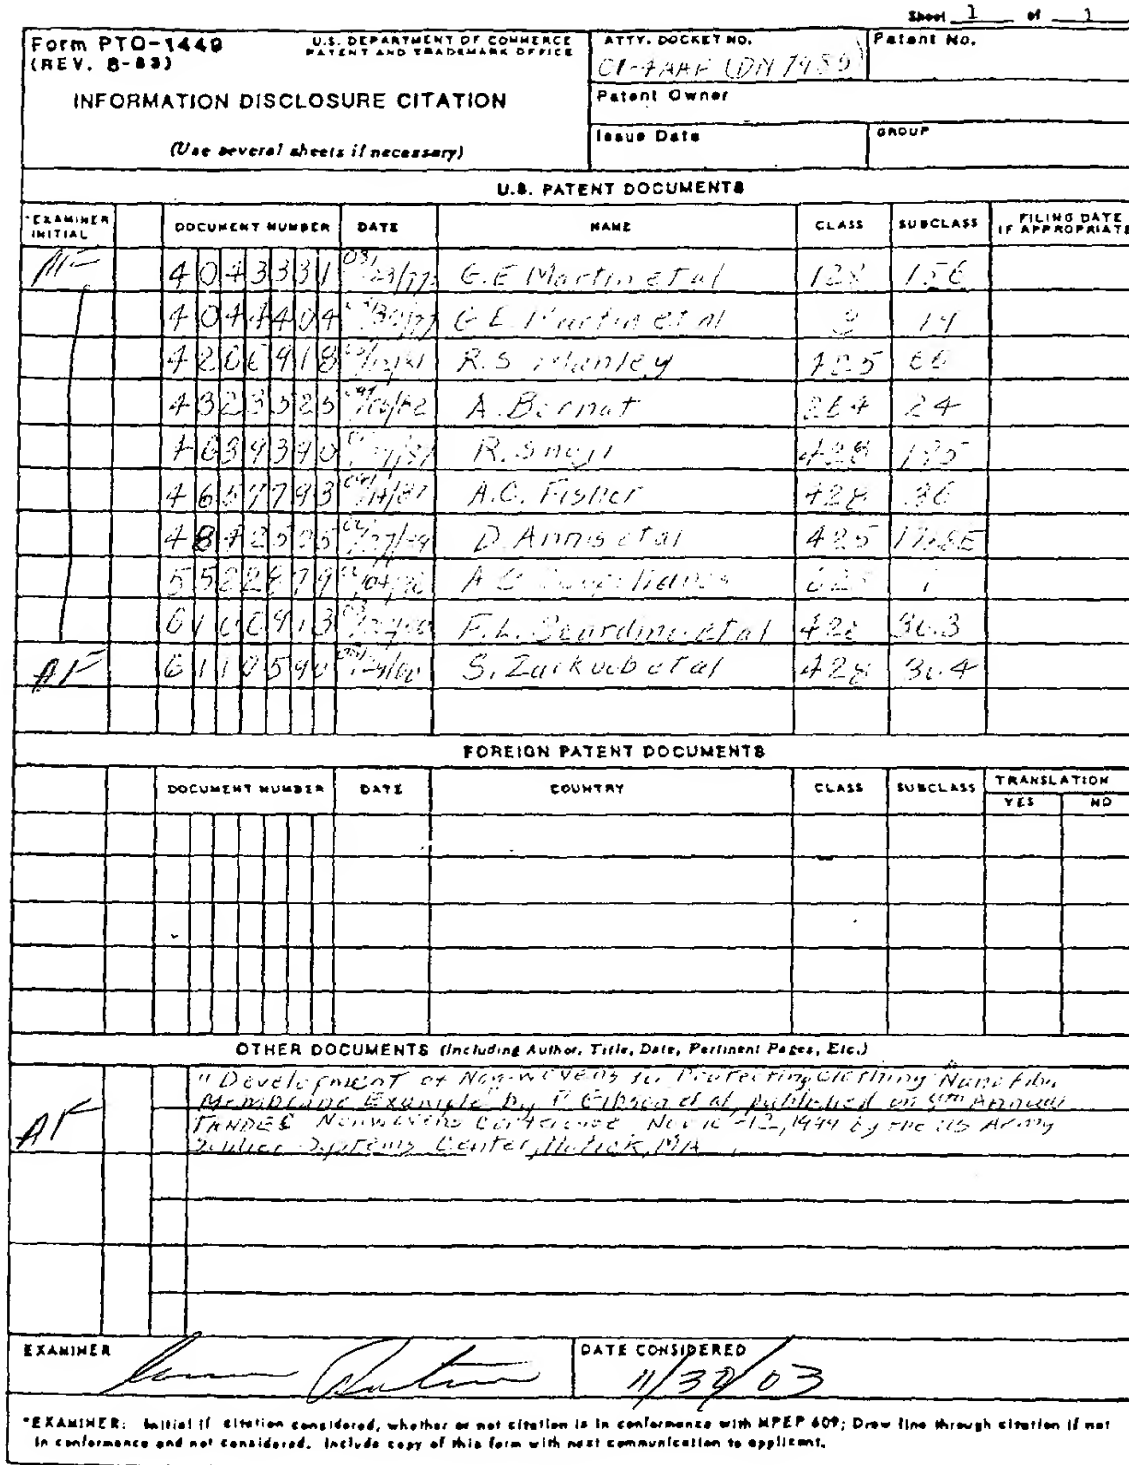 Sheet 1 of 1
Form PTO-1449 U.S. DEPARTMENT OF COMMERCE ATTY. DOCKET NO. Patent No.
(REV. 8-83) PATENT AND TRADEMARK OFFICE
INFORMATION DISCLOSURE CITATION Patent Owner
Issue Date GROUP
(Use several sheets if necessary)
U.S. PATENT DOCUMENTS
*EXAMINER INITIAL DOCUMENT NUMBER DATE NAME CLASS SUBCLASS FILING DATE IF APPROPRIATE
AF 4043331 G.E Martin et al 128 156
4044404 G E. Martin et al 3 14
4206918 R.S. Manley 425 66
4323525 A. Bornat 264 24
4639390 R. Shoji 428 195
4657793 A.C. Fisher 428 36
4842505 D. Annis et al 425
5522879 A C 623 1
6100913 F.L. Scardino et al 428 36.3
AF 6110590 S. Zarkoob et al 428 36.4
FOREIGN PATENT DOCUMENTS
DOCUMENT NUMBER DATE COUNTRY CLASS SUBCLASS TRANSLATION
YES NO
OTHER DOCUMENTS (Including Author, Title, Date, Pertinent Pages, Etc.)
"Development of Non-wovens for Protecting Clothing Nano Fiber
AF Membrane Example by P. Gibson et al, published on 9th Annual
TANDEC Nonwovens Conference Nov 10-12, 1999 by the US Army
Soldier Systems Center, Natick, MA
EXAMINER DATE CONSIDERED
11/30/03
*EXAMINER: Initial if citation considered, whether or not citation is in conformance with MPEP 609; Draw line through citation if not
in conformance and not considered. Include copy of this form with next communication to applicant.